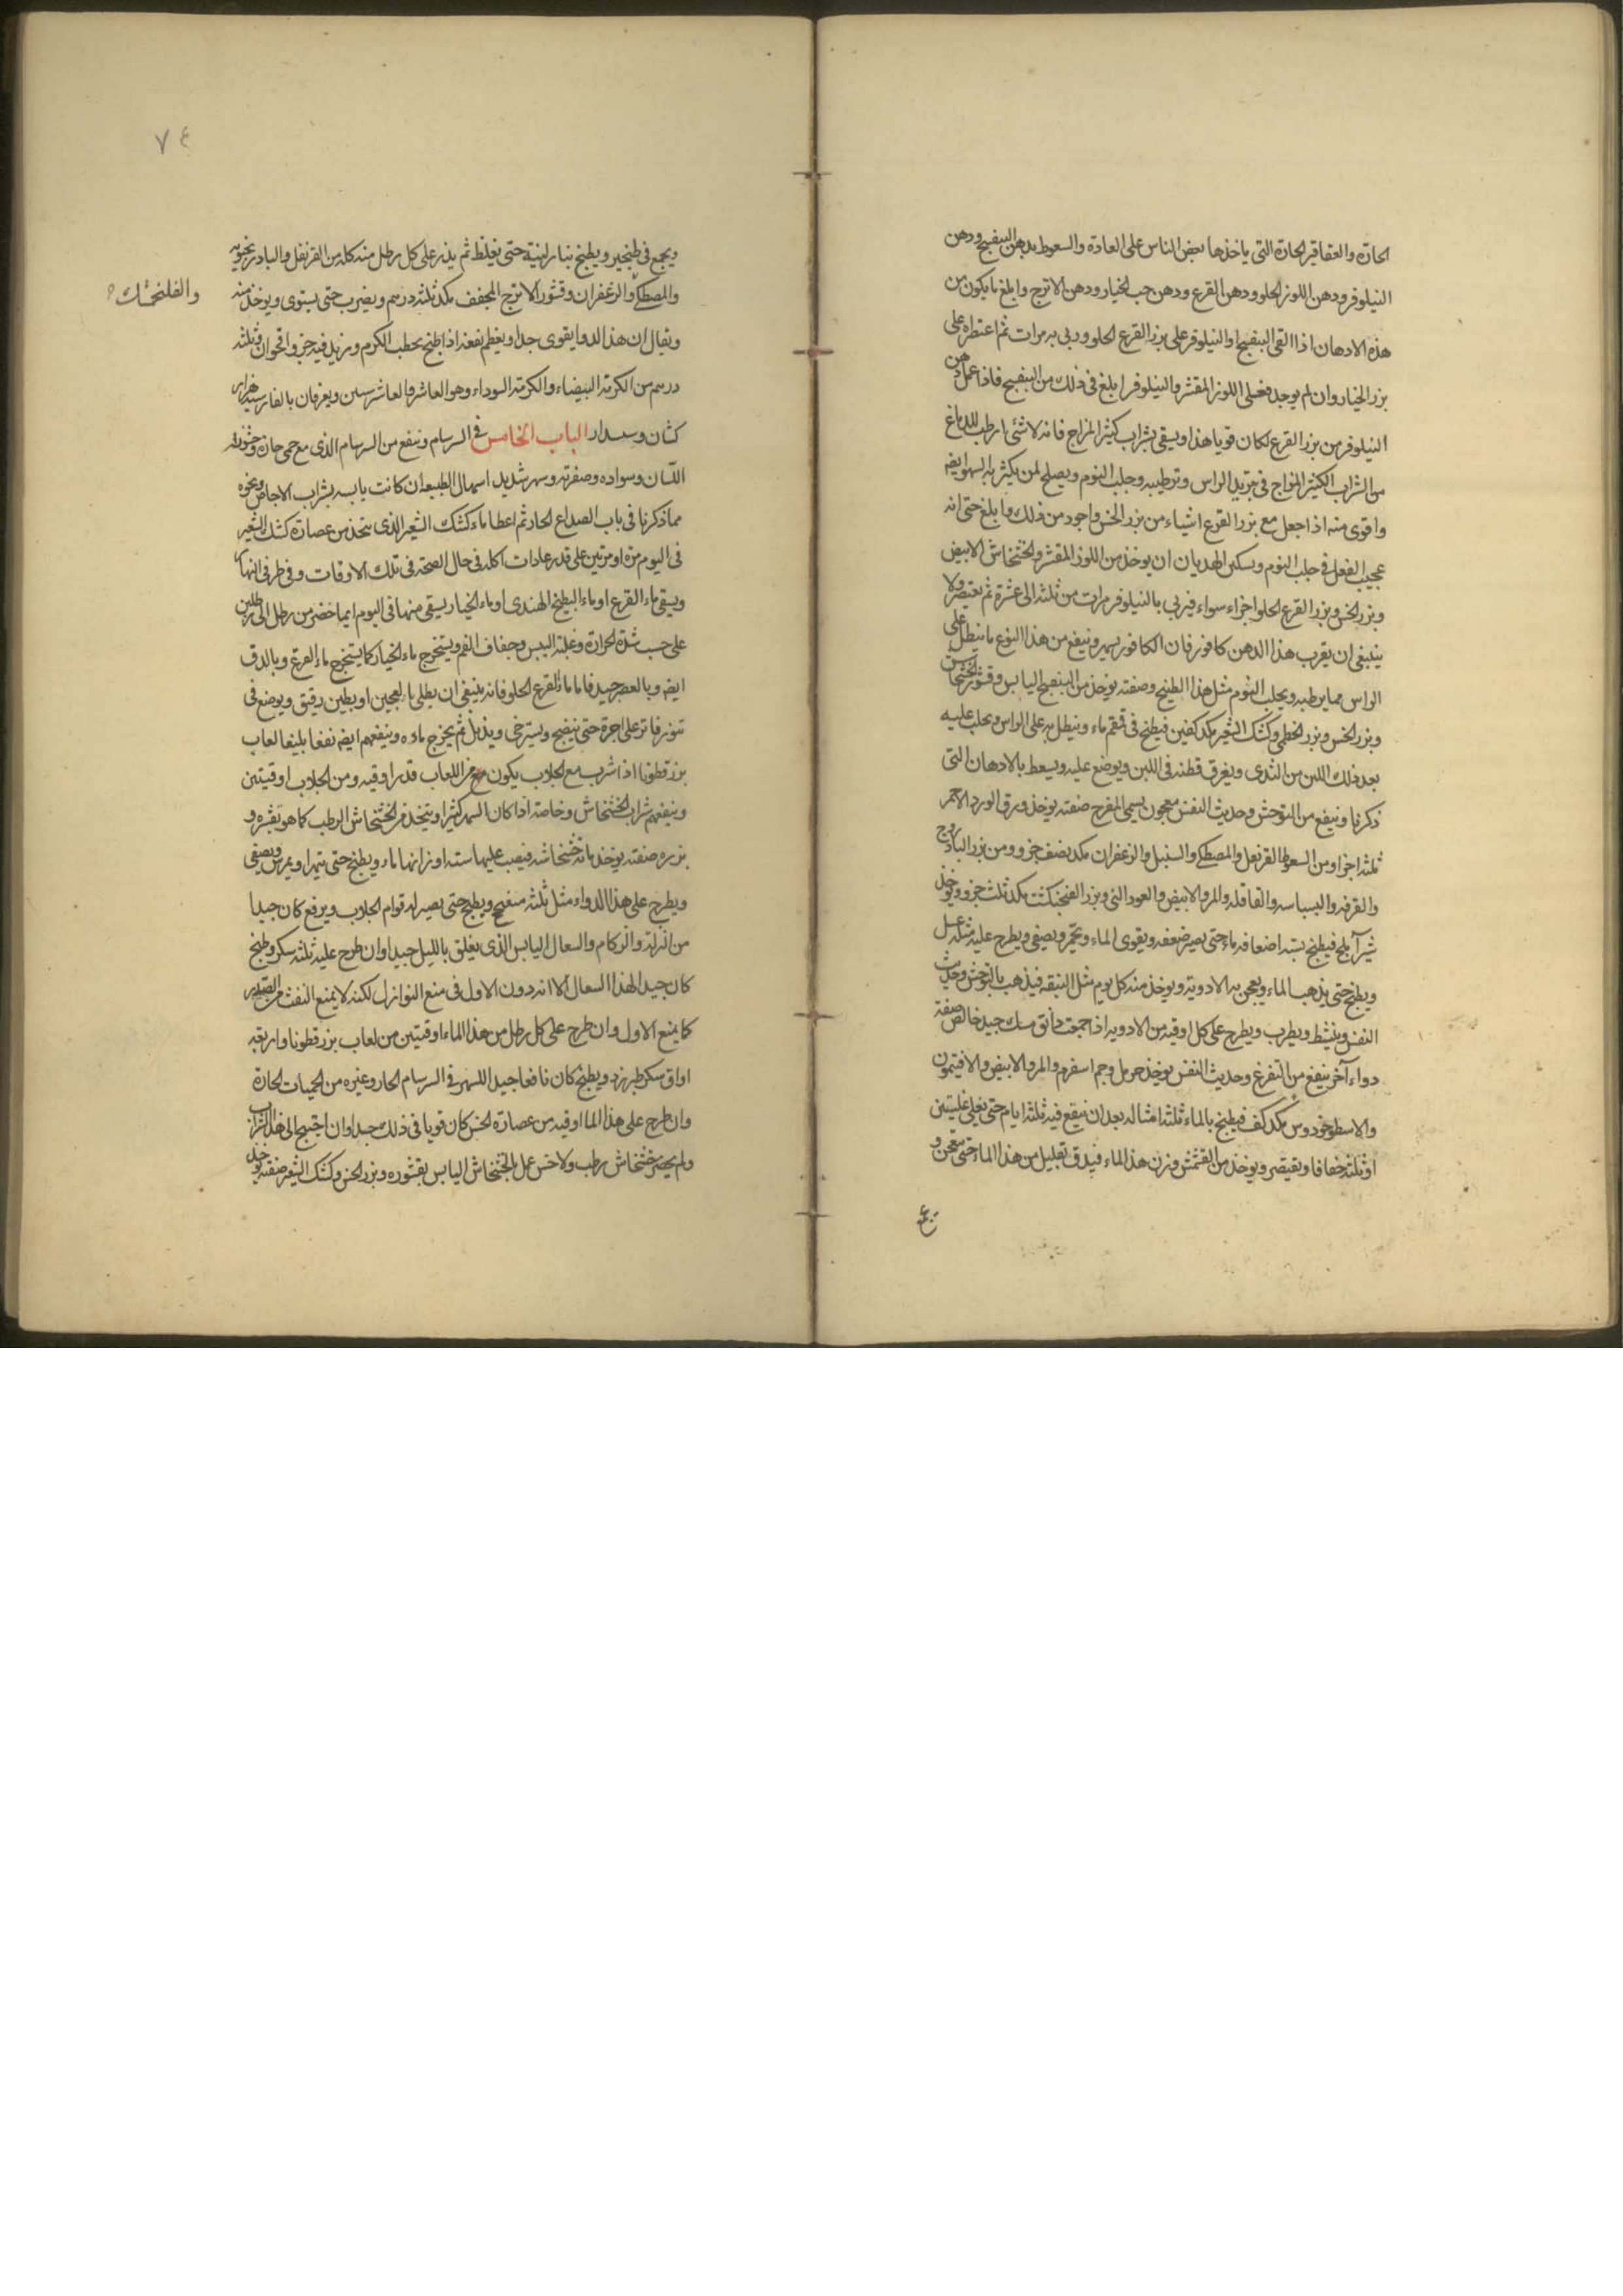 الحارة والعقاقير الحارة التى ياخذها بعض الناس على العادة والسعوط بدهن البنفسج ودهن
النيلوفر ودهن اللوز الحلو ودهن القرع ودهن حب الخيار ودهن الاترج وابلغ ما يكون من
هذه الادهان اذا القى البنفسج او النيلوفر على بزر القرع الحلو وربى به مرات ثم اعتصر على
بزر الخيار وان لم يوجد فعلى اللوز المقشر والنيلوفر ابلغ فى ذلك من البنفسج فاذا عمل دهن
النيلوفر من بزر القرع لكان قويا هذا ويسقى بشراب كثير المزاج فانه لا شئ ارطب للدماغ
من الشراب الكثير المزاج فى تبريد الراس وترطيبه وجلب النوم ويصلح لمن يكثر به السهر ايضه
واقوى منه اذا جعل مع بزر القرع اشياء من بزر الخس واجود من ذلك وابلغ حتى انه
عجيب الفعل فى جلب النوم وتسكين الهذيان ان يوخذ من اللوز المقشر والخشخاش الابيض
وبزر الخس وبزر القرع الحلو اجزاء سواء فيربى بالنيلوفر مرات من ثلثه الى عشرة ثم يعتصر ولا
ينبغى ان يقرب هذا الدهن كافور فان الكافور يسهر وينفع من هذا النوع ما ينطل على
الراس مما يرطبه ويجلب النوم مثل هذا الطبيخ وصفته يوخذ من البنفسج اليابس وقشور الخشخاش
وبزر الخس وبزر الخطمى وكشك الشعير مكد كفين فيطبخ فى قمقم ماء وينطل به على الراس ويحلب عليه
بعد ذلك اللبن من الثدى ويغرق قطنه فى اللبن ويوضع عليه ويسعط بالادهان التى
ذكرنا وينفع من التوحش وحديث النفس معجون يسمى المفرح صفته يوخذ ورق الورد الاحمر
ثلثه اجزا ومن السعد والقرنفل والمصطكى والسنبل والزعفران مكد نصف جزو ومن بزر الباذروج
والقرفه والبسباسه والقاقله والمرو الابيض والعود النى وبزر الفنجنكشت مكد ثلث جزو ويوخذ
شير آملج فيطبخ بسته اضعافه ماء حتى يصير ضعفه ويقوى الماء ويحمر ويصفى ويطرح عليه مثله عسل
ويطبخ حتى يذهب الماء ويعجن به الادويه ويوخذ منه كل يوم مثل النبقه فيذهب بالتوحش وحديث
النفس وينشط ويطرب ويطرح على كل اوقيه من الادويه اذا جمعت دانق مسك جيد خالص صفة
دواء آخر ينفع من التفزع وحديث النفس يوخذ حرمل وجم اسفرم والمرو الابيض والافتيمون
والاسطوخودوس مكد كف فيطبخ بالماء ثلثه امثاله بعد ان ينقع فيه ثلثه ايام حتى يغلى غليتين
او ثلثه خفافا ويعتصر ويوخذ من القشمش وزن هذا الماء فيدق بقليل من هذا الماء حتى يتعجن و
ويجمع فى طنجير ويطبخ بنار لينة حتى يغلظ ثم يذر على كل رطل منه كله من القرنفل والبادرنجويه
والمصطكى والزعفران وقشور الاترج المجفف مكد ثلثه درهم ويضرب حتى يستوى ويوخذ منه
والفلنجمشك
ويقال ان هذا الدوا يقوى جدا ويعظم نفعه اذا طبخ بحطب الكرم وزيد فيه جزو اقحوان وثلثه
درهم من الكرمة البيضاء والكرمة السوداء وهو العاشر والعاشرسين ويعرفان بالفارسيه هزار
كشان وسسدار الباب الخامس فى السرسام وينفع من السرسام الذى مع حمى حارة وخشونة
اللسان وسواده وصفرته وسهر شديد اسهال الطبيعه ان كانت يابسه بشراب الاجاص ونحوه
مما ذكرنا فى باب الصداع الحار ثم اعطا ماء كشك الشعير الذى يتخذ من عصارة كشك الشعير
فى اليوم مرة او مرتين على قدر عادات اكله فى حال الصحة فى تلك الاوقات وفى طرفى النهار
ويسقى ماء القرع او ماء البطيخ الهندى او ماء الخيار يسقى منها فى اليوم ايما حضر من رطل الى رطلين
على حسب شدة الحرارة وغلبة اليبس وجفاف الفم ويستخرج ماء الخيار كما يستخرج ماء القرع وبالدق
ايضه وبالعصر جيد فاما ماء القرع الحلو فانه ينبغى ان يطلى بالعجين او بطين رقيق ويوضع فى
تنور فاتر على اجرة حتى ينضج ويسترخى ويذبل ثم يخرج ماءه وينفعهم ايضه نفعا بليغا لعاب
بزر قطونا اذا شرب مع الجلاب يكون من اللعاب قدر اوقيه ومن الجلاب اوقيتين
وينفعهم شراب الخشخاش وخاصة اذا كان السهر كثيرا ويتخذ من الخشخاش الرطب كما هو بقشره و
بزره صفته يوخذ مائة خشخاشه فيصب عليها سته اوزانها ماء ويطبخ حتى يتهرا ويمرس ويصفى
ويطرح على هذا الدواء مثل ثلثه ويطبخ حتى يصير له قوام الجلاب ويرفع كان جيدا
من النزلة والزكام والسعال اليابس الذى يقلق بالليل جيدا وان طرح عليه ثلثه سكر وطبخ
كان جيدا لهذا السعال الا انه دون الاول فى منع النوازل لكنه لا يمنع النفث من الصدر
كما يمنع الاول وان طرح على كل رطل من هذا الماء اوقيتين من لعاب بزر قطونا واربعه
اواق سكر طبرزد ويطبخ كان نافعا جيدا للسهر فى السرسام الحار وغيره من الحميات الحارة
وان طرح على هذا الما اوقيه من عصارة الخس كان قويا فى ذلك جدا وان احتيج الى هذا الشراب
ولم يحضر خشخاش رطب ولا خس عمل بالخشخاش اليابس بقشوره وبزر الخس وكشك الشعير صفته يوخذ
٧٤